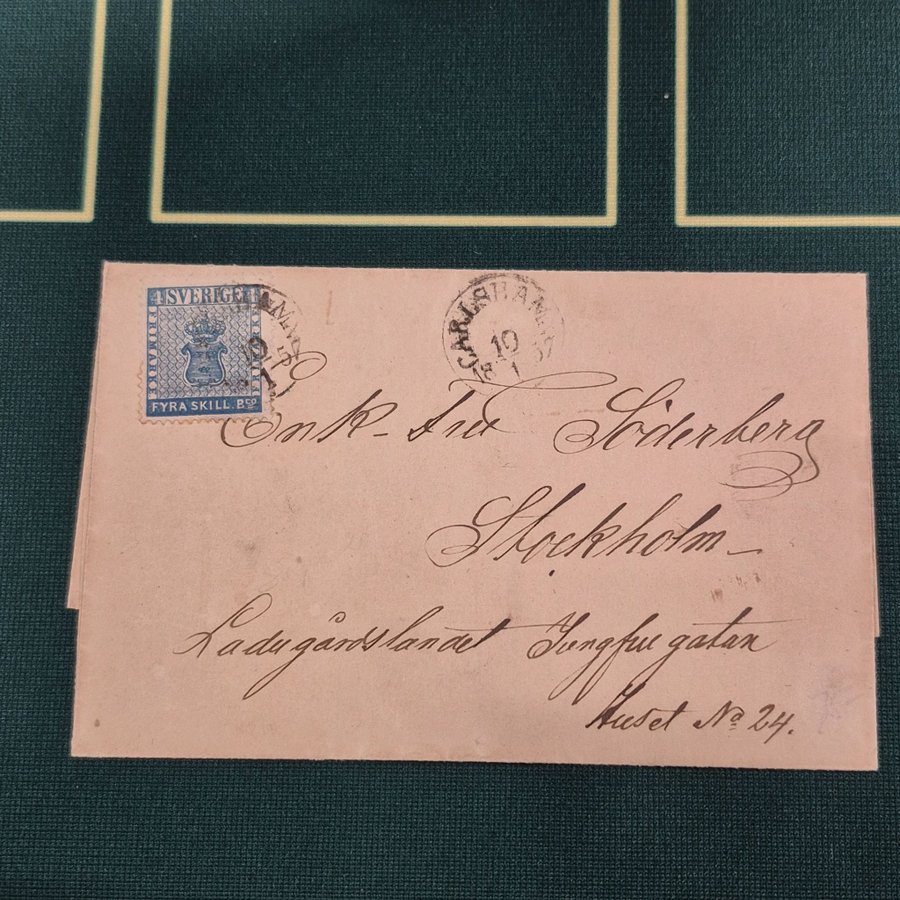 4 SVERIGE 4
FYRA SKILL. Bco
CARLSHAMN
10
1857
1
CARLSHAMN
10
1
Enk-Fru Söderberg
Stockholm
Ladugårdslandet Jungfrugatan
Huset No 24.